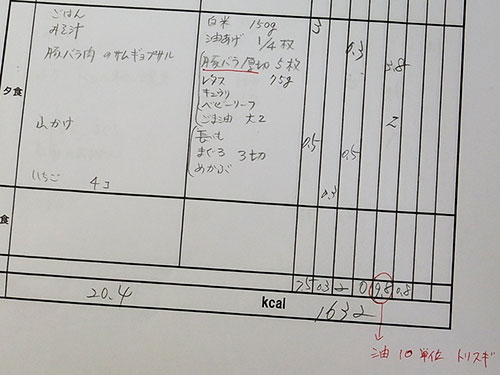 ごはん 白米 150g 3
みそ汁 油あげ 1/4枚 0.3
豚バラ肉のサムギョプサル 豚バラ厚切 5枚 5.8
レタス 75g
キュウリ
ベビーリーフ
夕食
ごま油 大2 2
山かけ 長いも 0.5
まぐろ 3切 0.5
めかぶ
いちご 4コ 0.3
食
7.5 0.3 2 0 9.8 0.8
20.4 kcal 1632
油 10単位 トリスギ